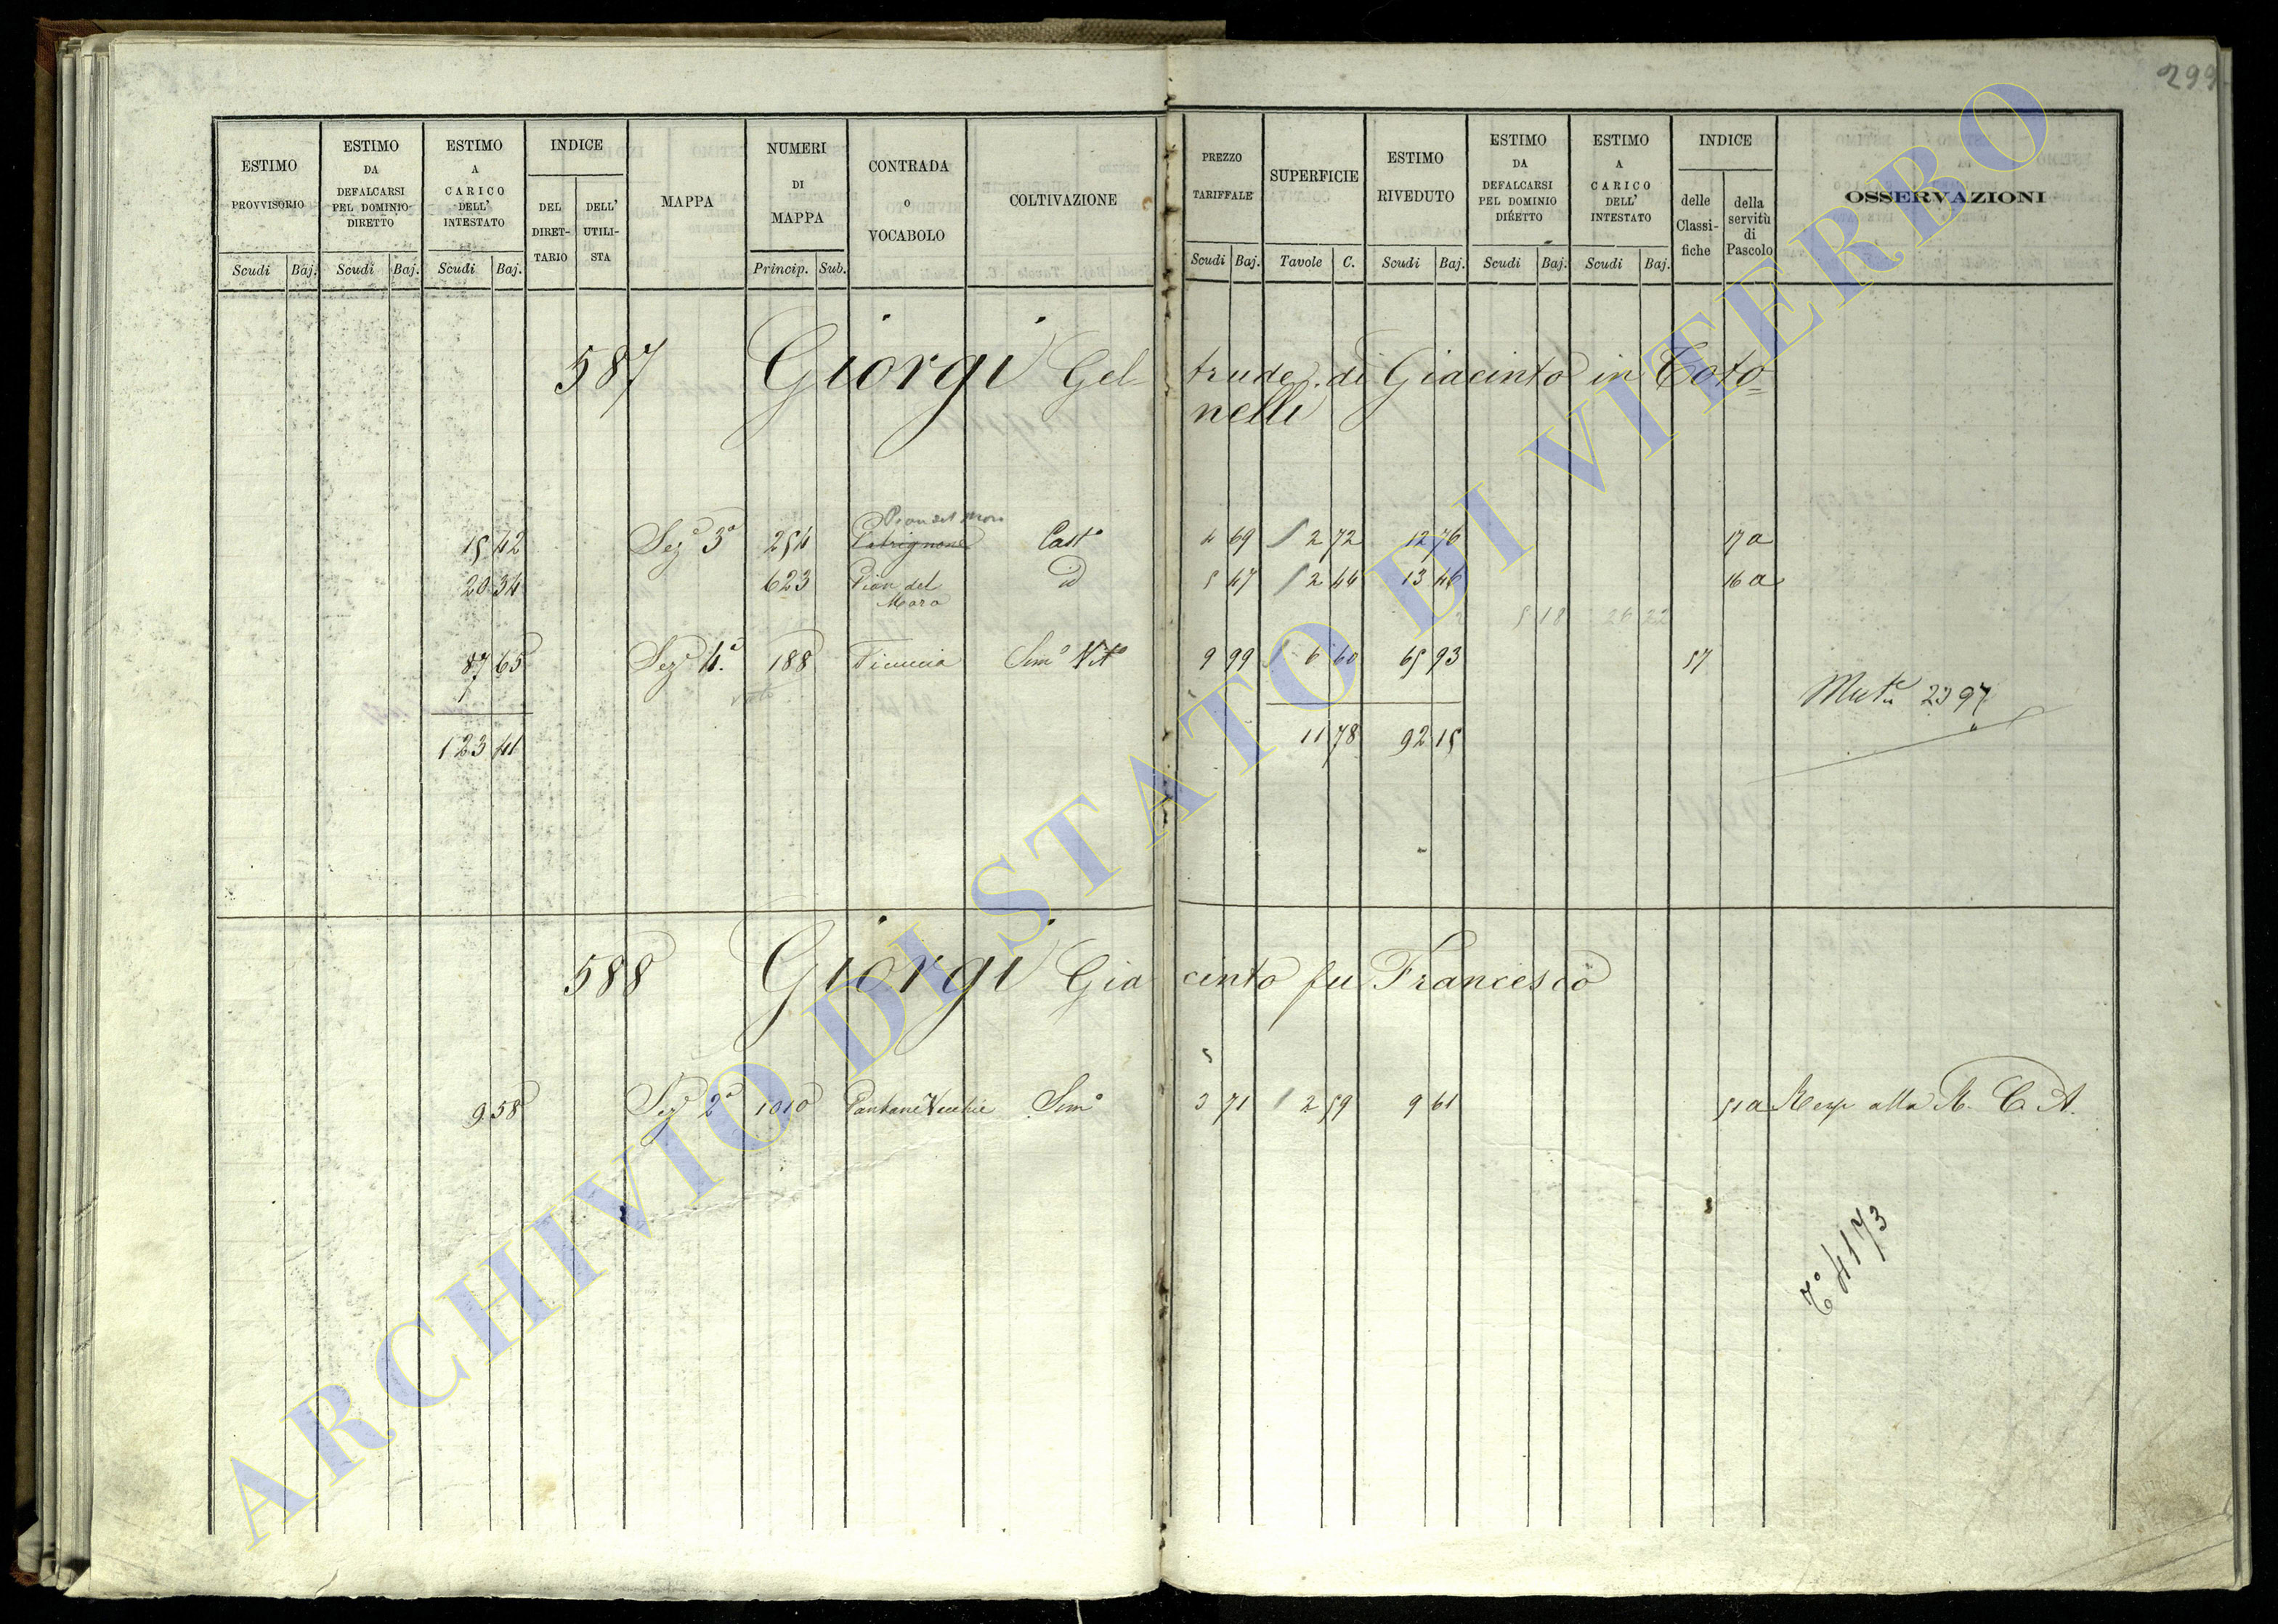 299
ESTIMO PROVVISORIO Scudi Baj.
ESTIMO DA DEFALCARSI PEL DOMINIO DIRETTO Scudi Baj.
ESTIMO A CARICO DELL' INTESTATO Scudi Baj.
INDICE DEL DIRET-TARIO DELL' UTILI-STA
MAPPA
NUMERI DI MAPPA Princip. Sub.
CONTRADA o VOCABOLO
COLTIVAZIONE
PREZZO TARIFFALE Scudi Baj.
SUPERFICIE Tavole C.
ESTIMO RIVEDUTO Scudi Baj.
ESTIMO DA DEFALCARSI PEL DOMINIO DIRETTO Scudi Baj.
ESTIMO A CARICO DELL' INTESTATO Scudi Baj.
INDICE delle Classi-fiche della servitù di Pascolo
OSSERVAZIONI
587 Giorgi Gel trude di Giacinto in Coto=
nelli
Pian del Moro
15 42 Sez.e 3a 254 Petrignone Casto 4 69 2 72 12 76 17 a
20 34 623 Pian del id 5 47 2 46 13 46 16 a
Moro
5 18 26 22
87 65 Sez.e 4.a 188 Ficuccia Smo Vto 9 99 6 60 65 93 57
Mut.e 2397
123 41 11 78 92 15
588 Giorgi Gia cinto fu Francesco
9 58 Sez.e 2a 1010 Pantane Vecchie Smo 3 71 2 59 9 61 51 a Resp alla R. C. A.
To 4173
ARCHIVIO DI STATO DI VITERBO